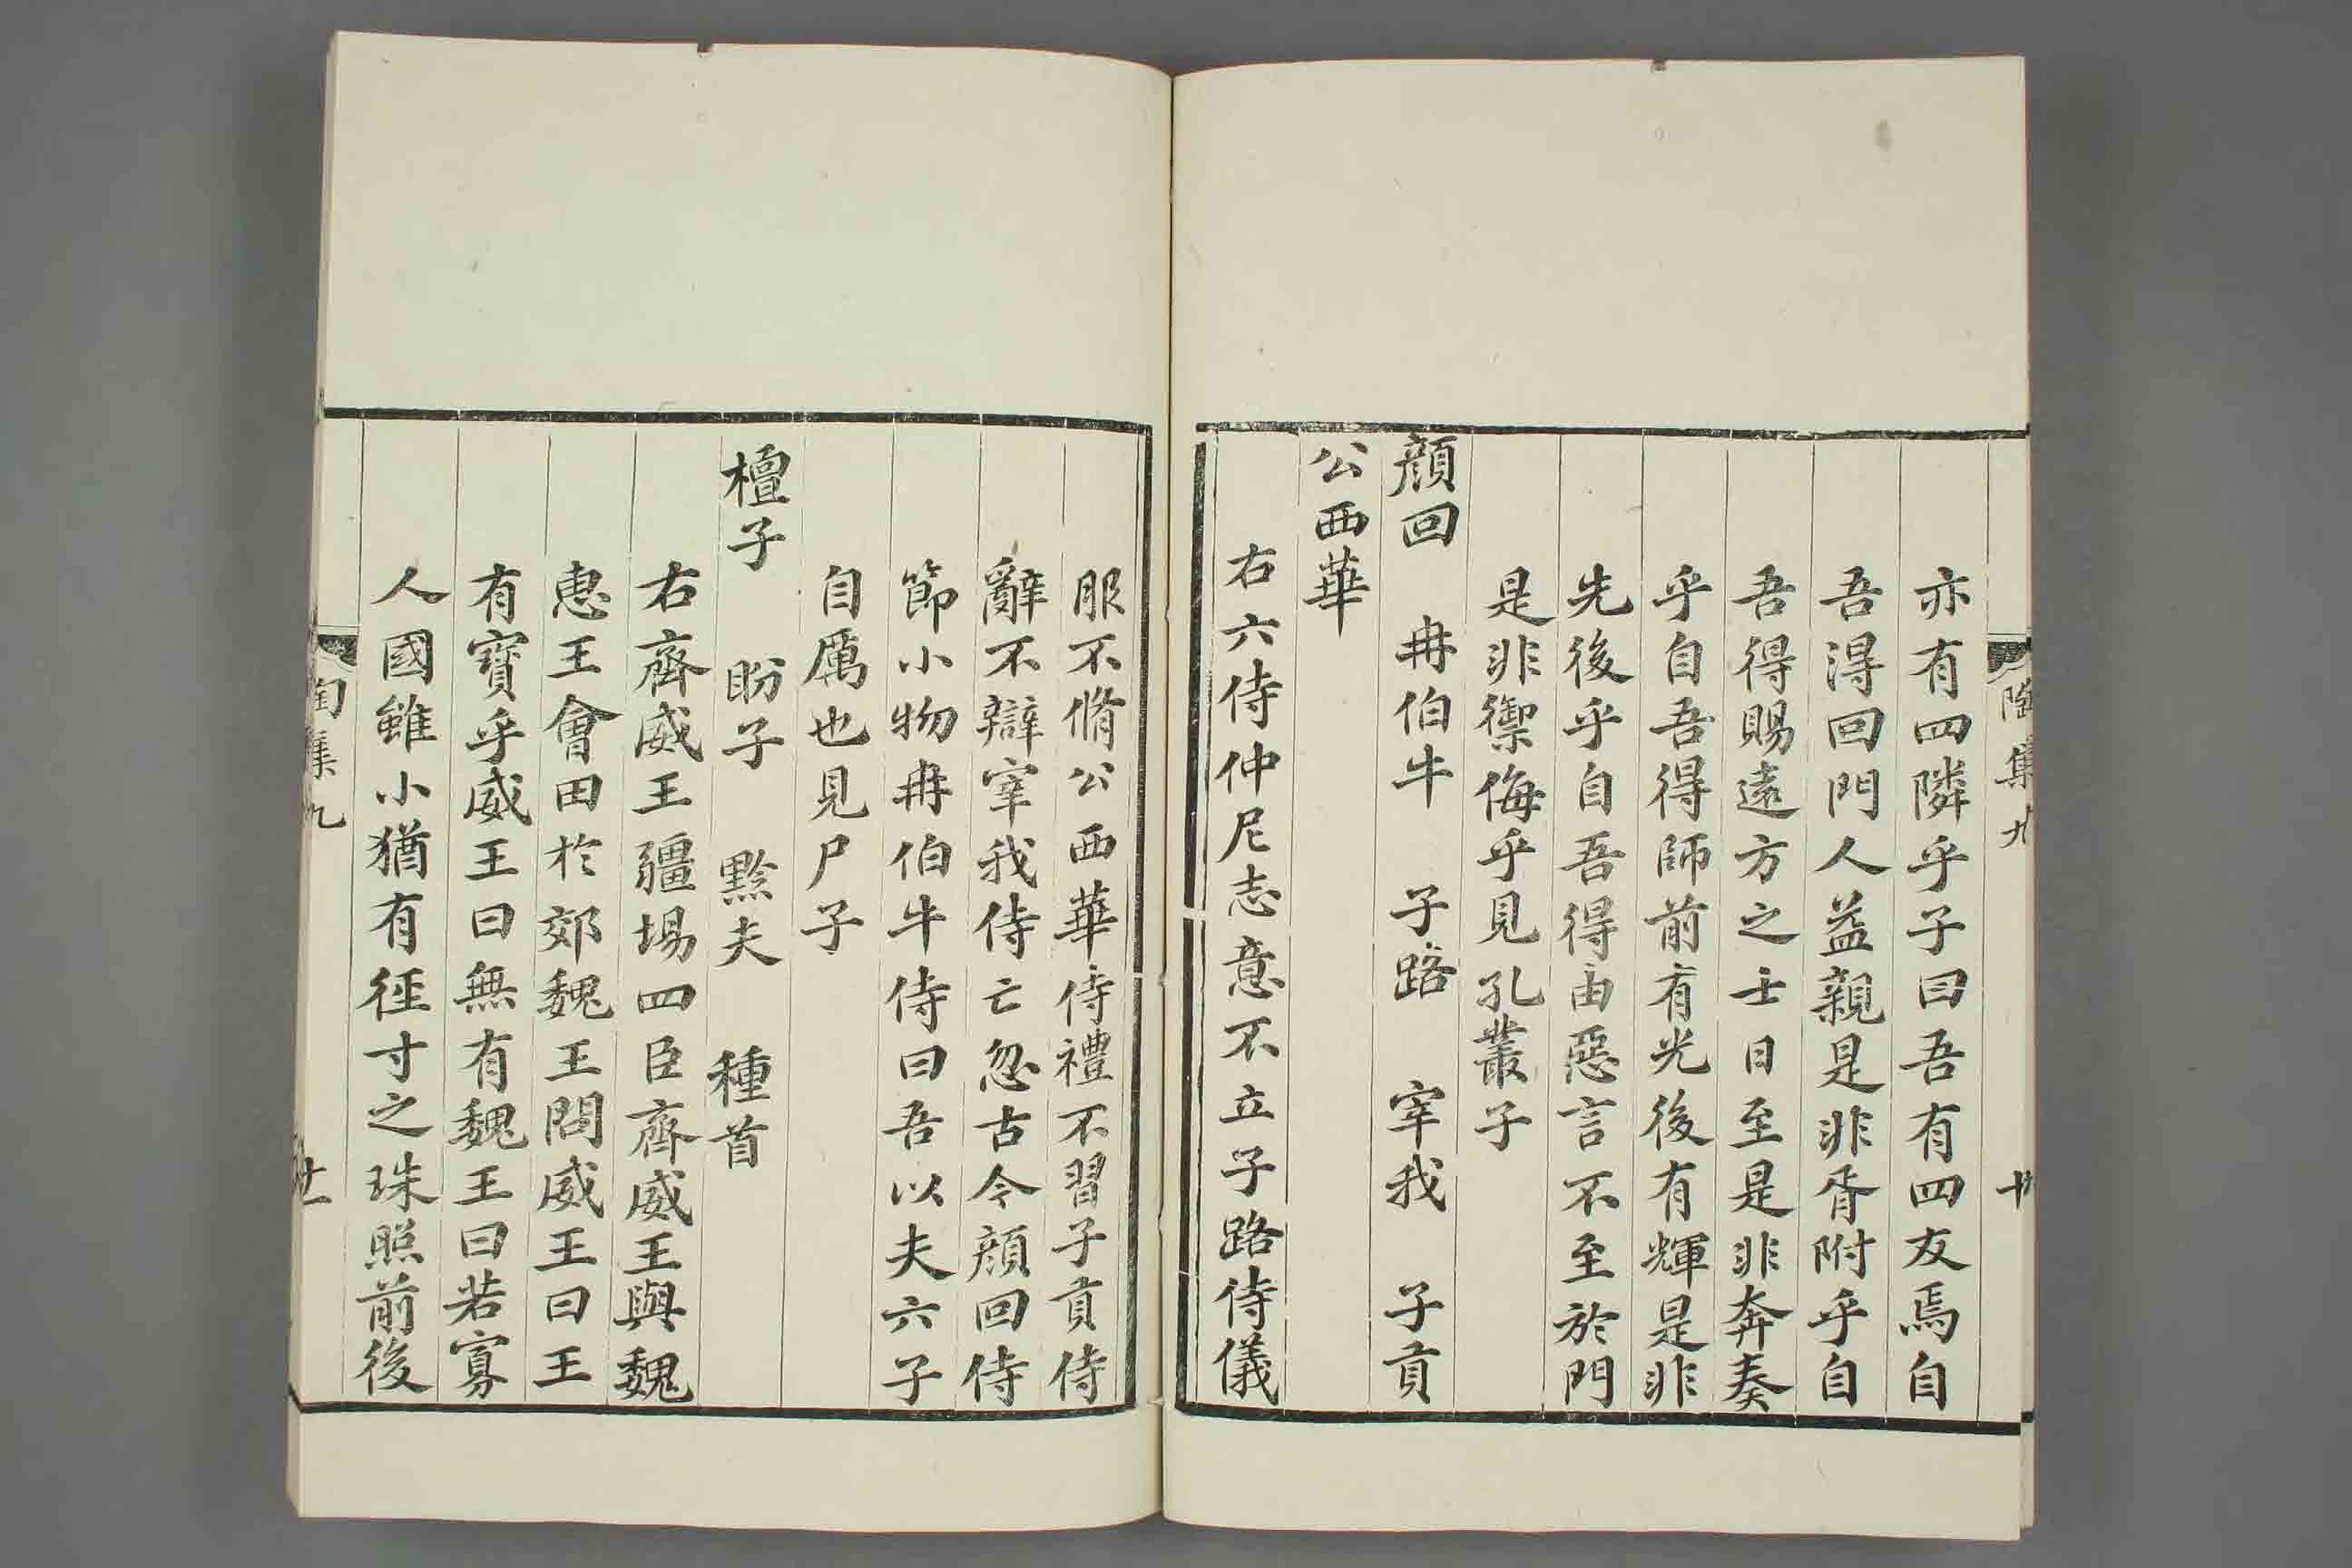 陶集九
十
亦有四隣乎子曰吾有四友焉自
吾得回門人益親是非胥附乎自
吾得賜遠方之士日至是非奔奏
乎自吾得師前有光後有輝是非
先後乎自吾得由惡言不至於門
是非禦侮乎見孔叢子
顔回 冉伯牛 子路 宰我 子貢
公西華
右六侍仲尼志意不立子路侍儀
服不脩公西華侍禮不習子貢侍
辭不辯宰我侍亡忽古今顔回侍
節小物冉伯牛侍曰吾以夫六子
自厲也見尸子
檀子 盼子 黔夫 種首
右齊威王疆埸四臣齊威王與魏
惠王會田於郊魏王問威王曰王
有寳乎威王曰無有魏王曰若寡
人國雖小猶有徑寸之珠照前後
陶集九
十一